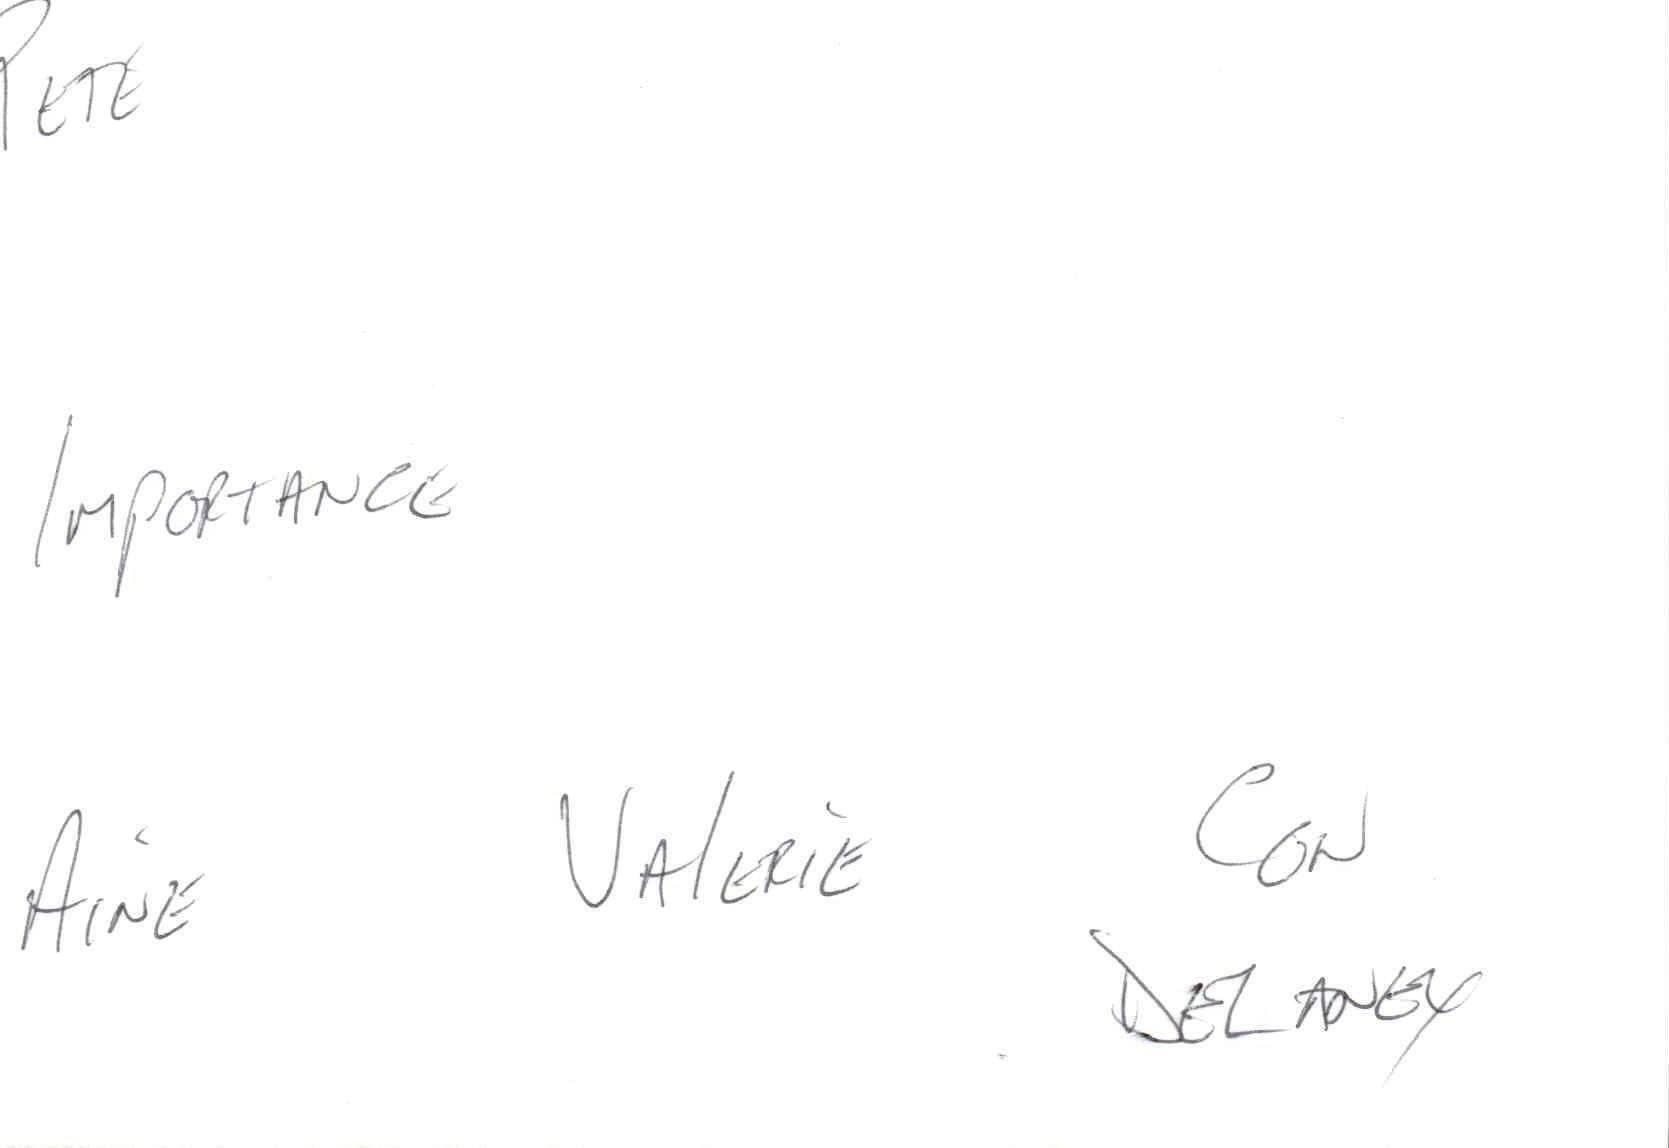 PETE
IMPORTANCE
AINE VALERIE CON
DELANEY